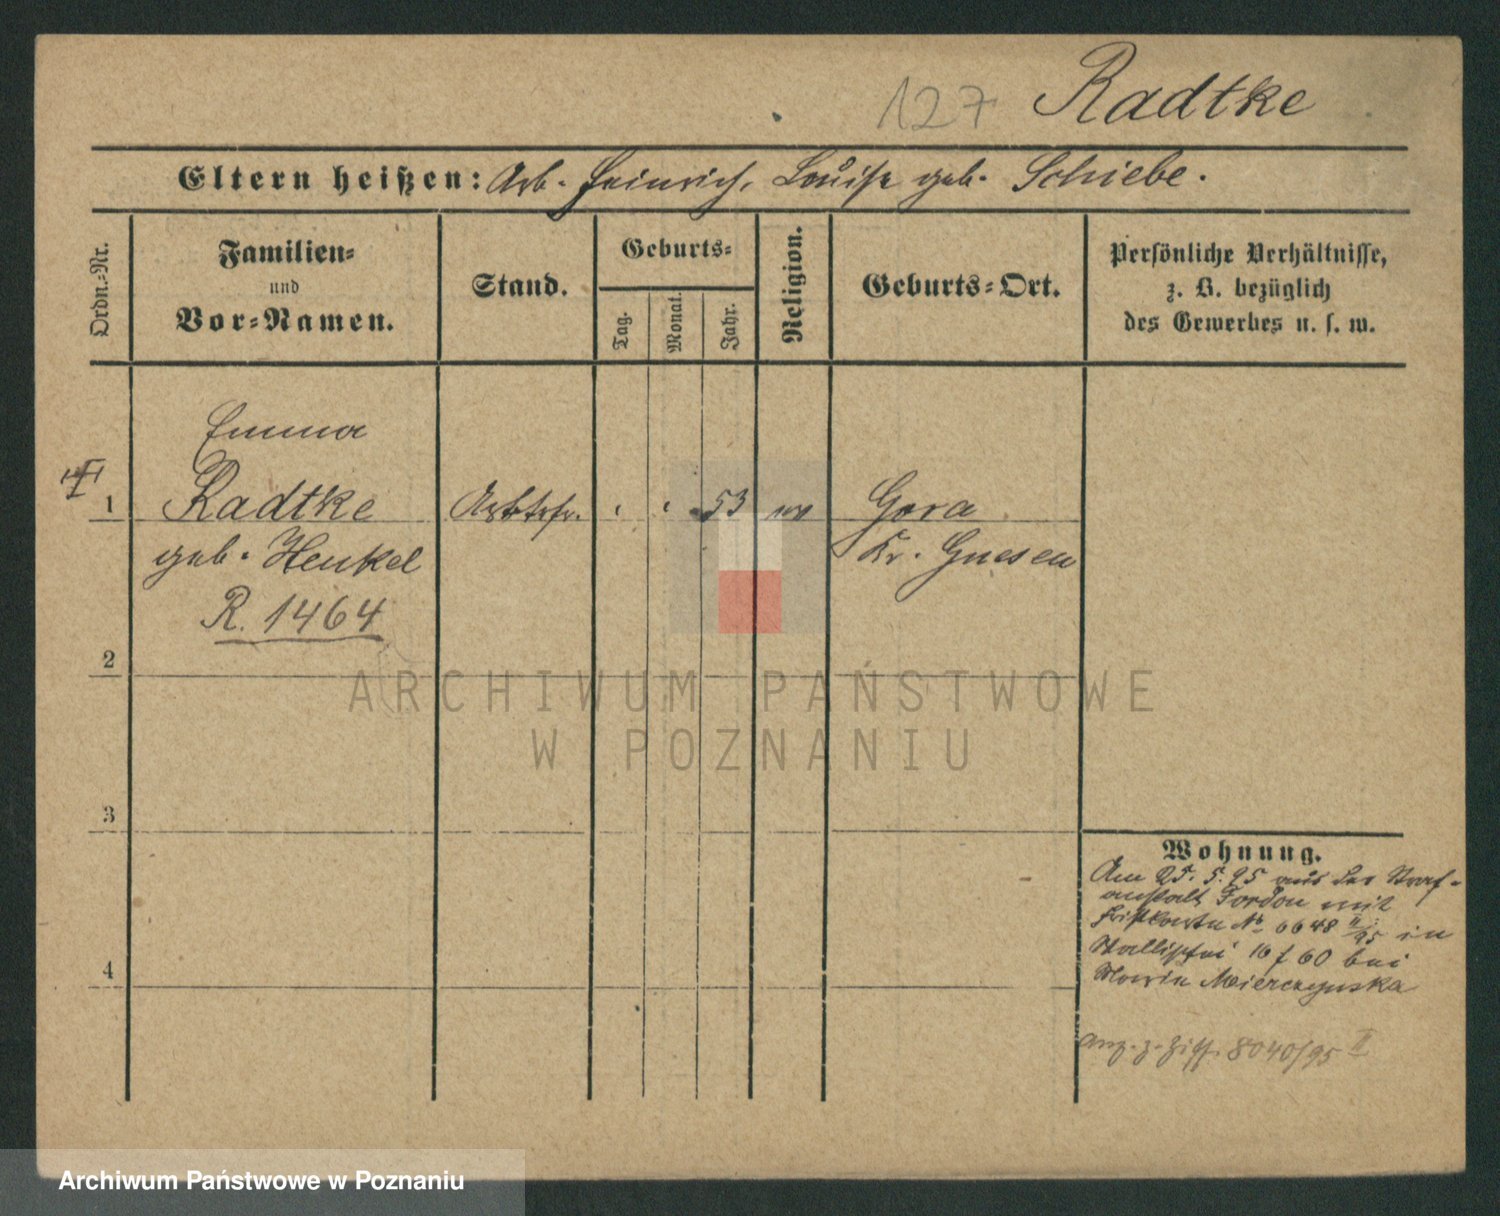 127 Radtke
Eltern heißen: Arb. Heinrich, Louise geb. Schiebe.
Ordn.-Nr.
Familien-
und
Vor-Namen.
Stand.
Geburts-
Tag.
Monat.
Jahr.
Religion.
Geburts-Ort.
Persönliche Verhältnisse,
z. B. bezüglich
des Gewerbes u. s. w.
Emma
1 Radtke 53 Gora
geb. Henkel Kr. Gnesen
R. 1464
2
3
4
Wohnung.
Am 25. 5. 95 aus der Straf-
anstalt Fordon mit
No 6648 II/95 in
Wallischei 16 f 60 bei
Maria Mierczynska
8040/95 II
ARCHIWUM PAŃSTWOWE
W POZNANIU
Archiwum Państwowe w Poznaniu